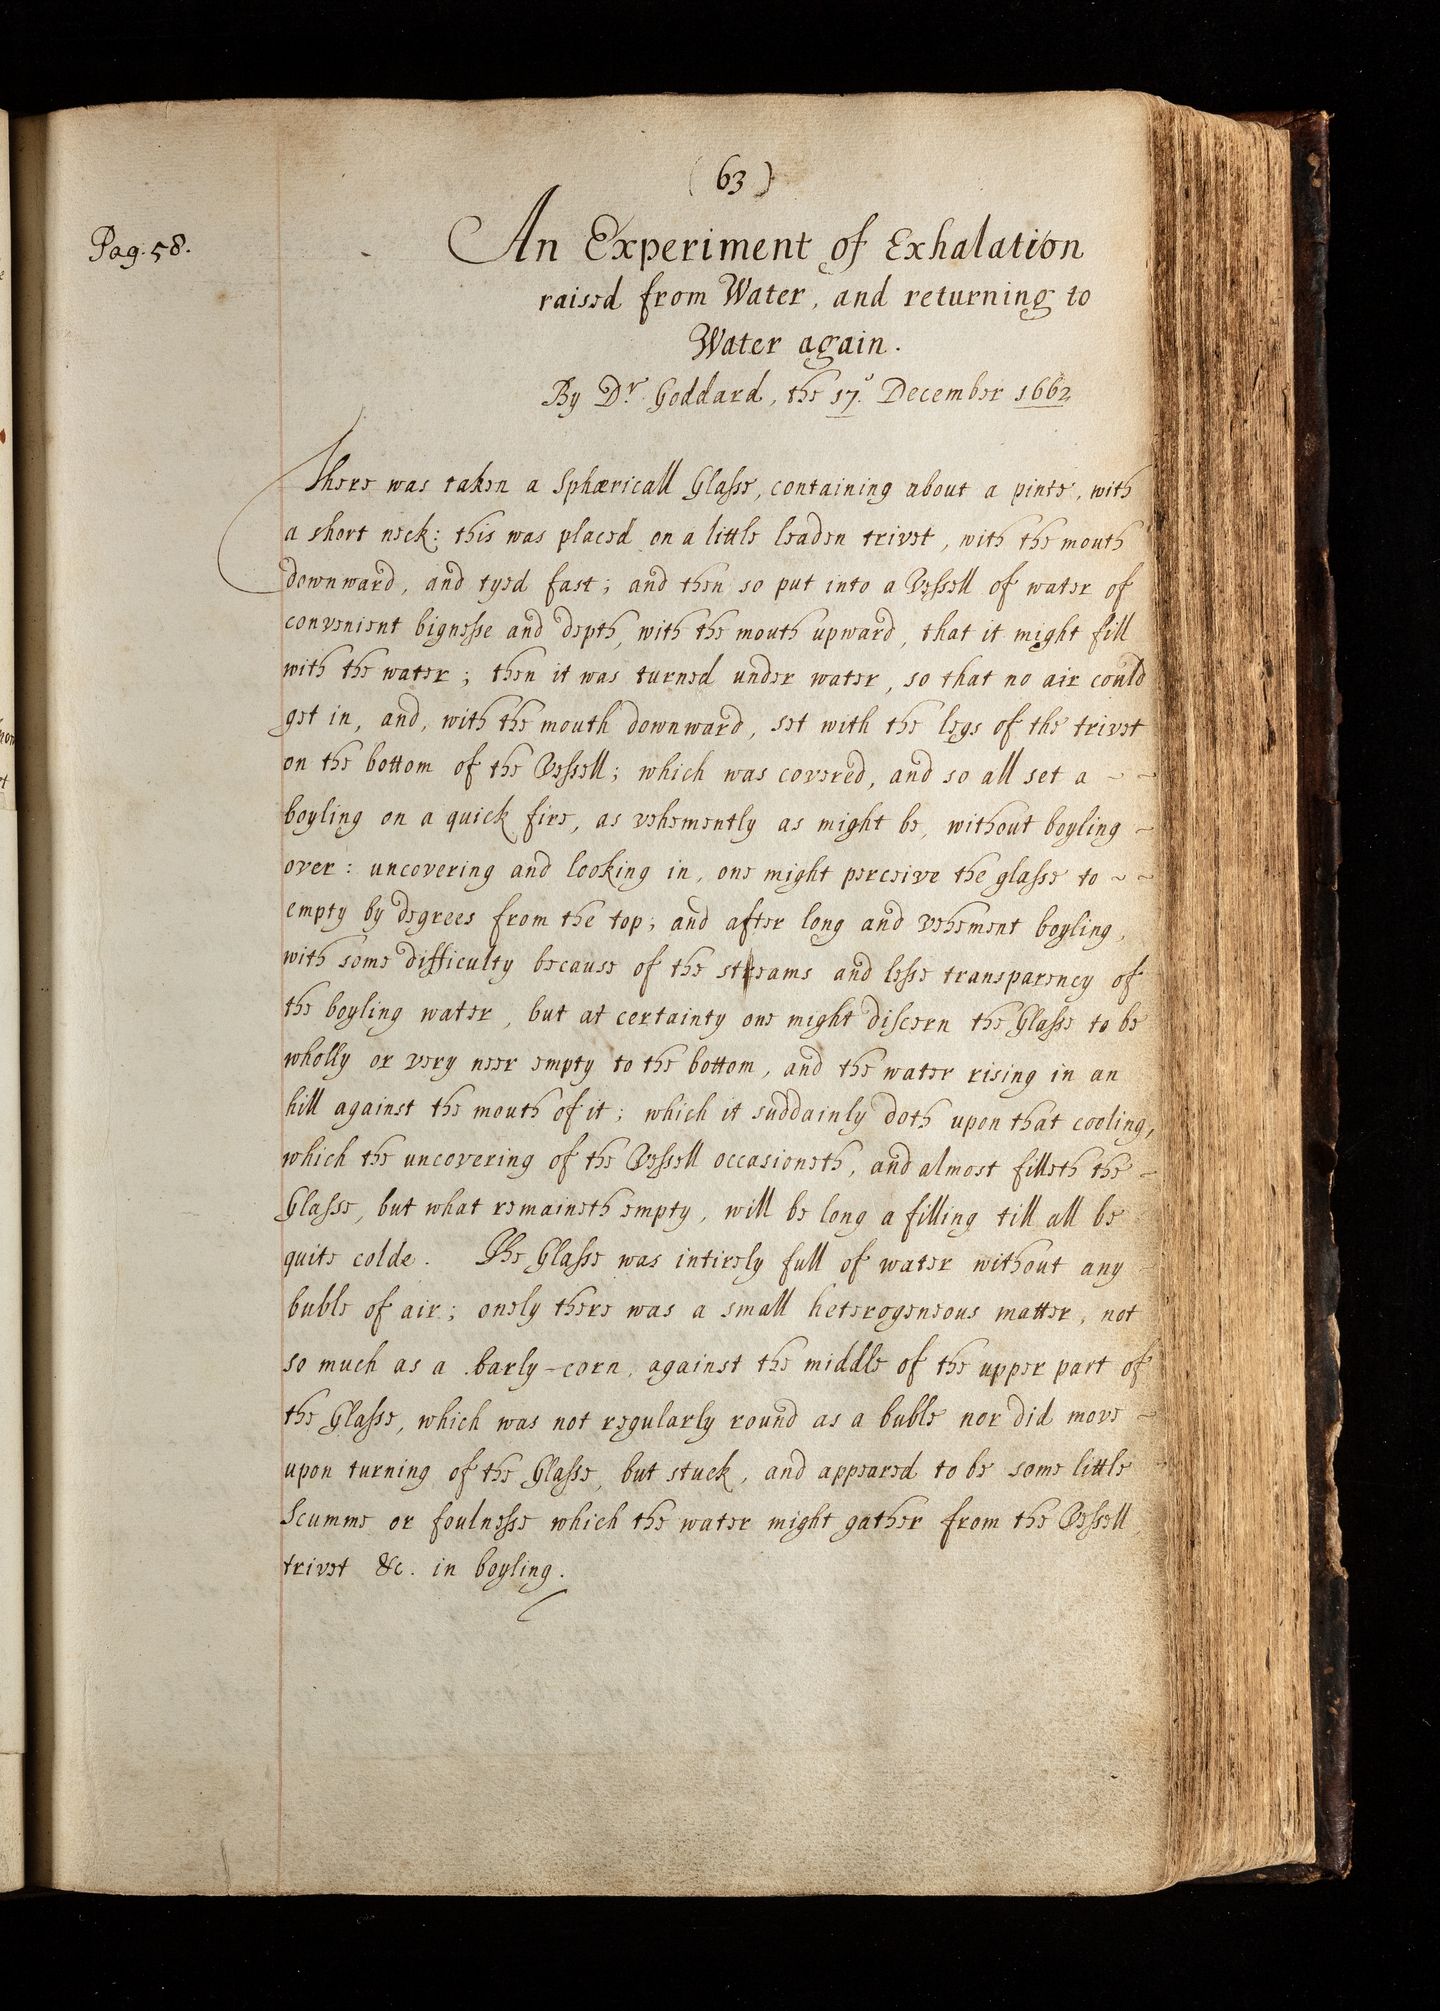 (63)
Pag. 58.
An Experiment of Exhalation
raised from Water, and returning to
Water again.
By Dr. Goddard, the 17.° December 1662
There was taken a Sphæricall Glasse, containing about a pinte, with
a short neck: this was placed on a little leaden trivet, with the mouth
downward, and tyed fast; and then so put into a Vessell of water of
convenient bignesse and depth, with the mouth upward, that it might fill
with the water; then it was turned under water, so that no air could
get in, and, with the mouth downward, set with the legs of the trivet
on the bottom of the Vessell; which was covered, and so all set a ~ ~
boyling on a quick fire, as vehemently as might be, without boyling ~
over: uncovering and looking in, one might perceive the glasse to ~ ~
empty by degrees from the top; and after long and vehement boyling,
with some difficulty because of the streams and lesse transparency of
the boyling water, but at certainty one might discern the Glasse to be
wholly or very neer empty to the bottom, and the water rising in an
hill against the mouth of it; which it suddainly doth upon that cooling,
which the uncovering of the Vessell occasioneth, and almost filleth the ~
Glasse, but what remaineth empty, will be long a filling till all be
quite colde. The Glasse was intirely full of water without any
buble of air; onely there was a small heterogeneous matter, not
so much as a barly-corn, against the middle of the upper part of
the Glasse, which was not regularly round as a buble nor did move ~
upon turning of the Glasse, but stuck, and appeared to be some little
Scumme or foulnesse which the water might gather from the Vessell
trivet &c. in boyling.